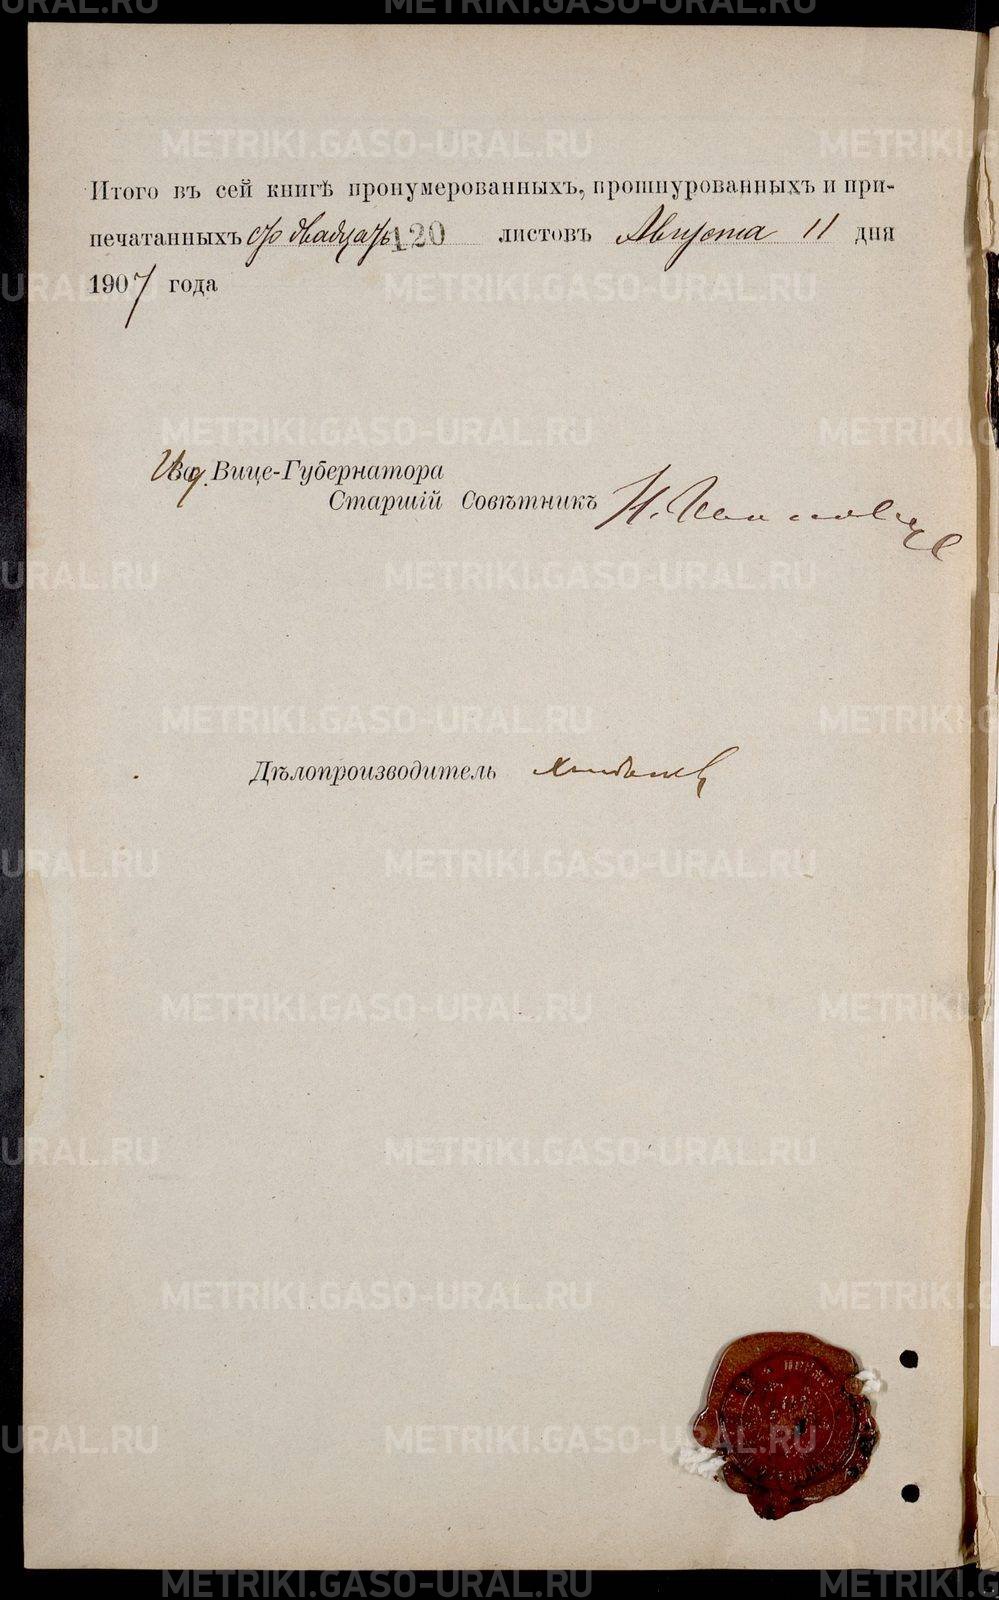 Итого въ сей книгѣ пронумерованныхъ, прошнурованныхъ и при-
печатанныхъ сто двадцать 120 листовъ Августа 11 дня
1907 года
И д. Вице-Губернатора
Старшій Совѣтникъ Н.
Дѣлопроизводитель
METRIKI.GASO-URAL.RU